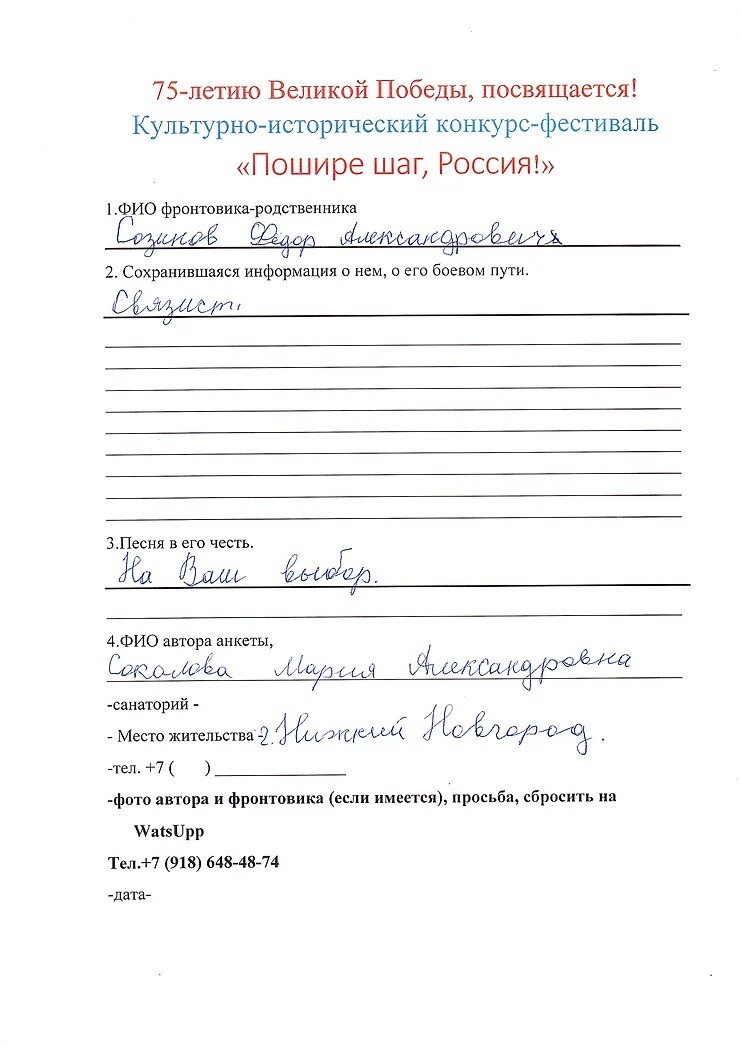 75-летию Великой Победы, посвящается!
Культурно-исторический конкурс-фестиваль
«Пошире шаг, Россия!»
1.ФИО фронтовика-родственника
Созинов Фёдор Александрович
2. Сохранившаяся информация о нем, о его боевом пути.
Связист.
3.Песня в его честь.
На Ваш выбор.
4.ФИО автора анкеты,
Соколова Мария Александровна
-санаторий -
- Место жительства -г. Нижний Новгород.
-тел. +7 ( ) _______________
-фото автора и фронтовика (если имеется), просьба, сбросить на
WatsUpp
Тел.+7 (918) 648-48-74
-дата-